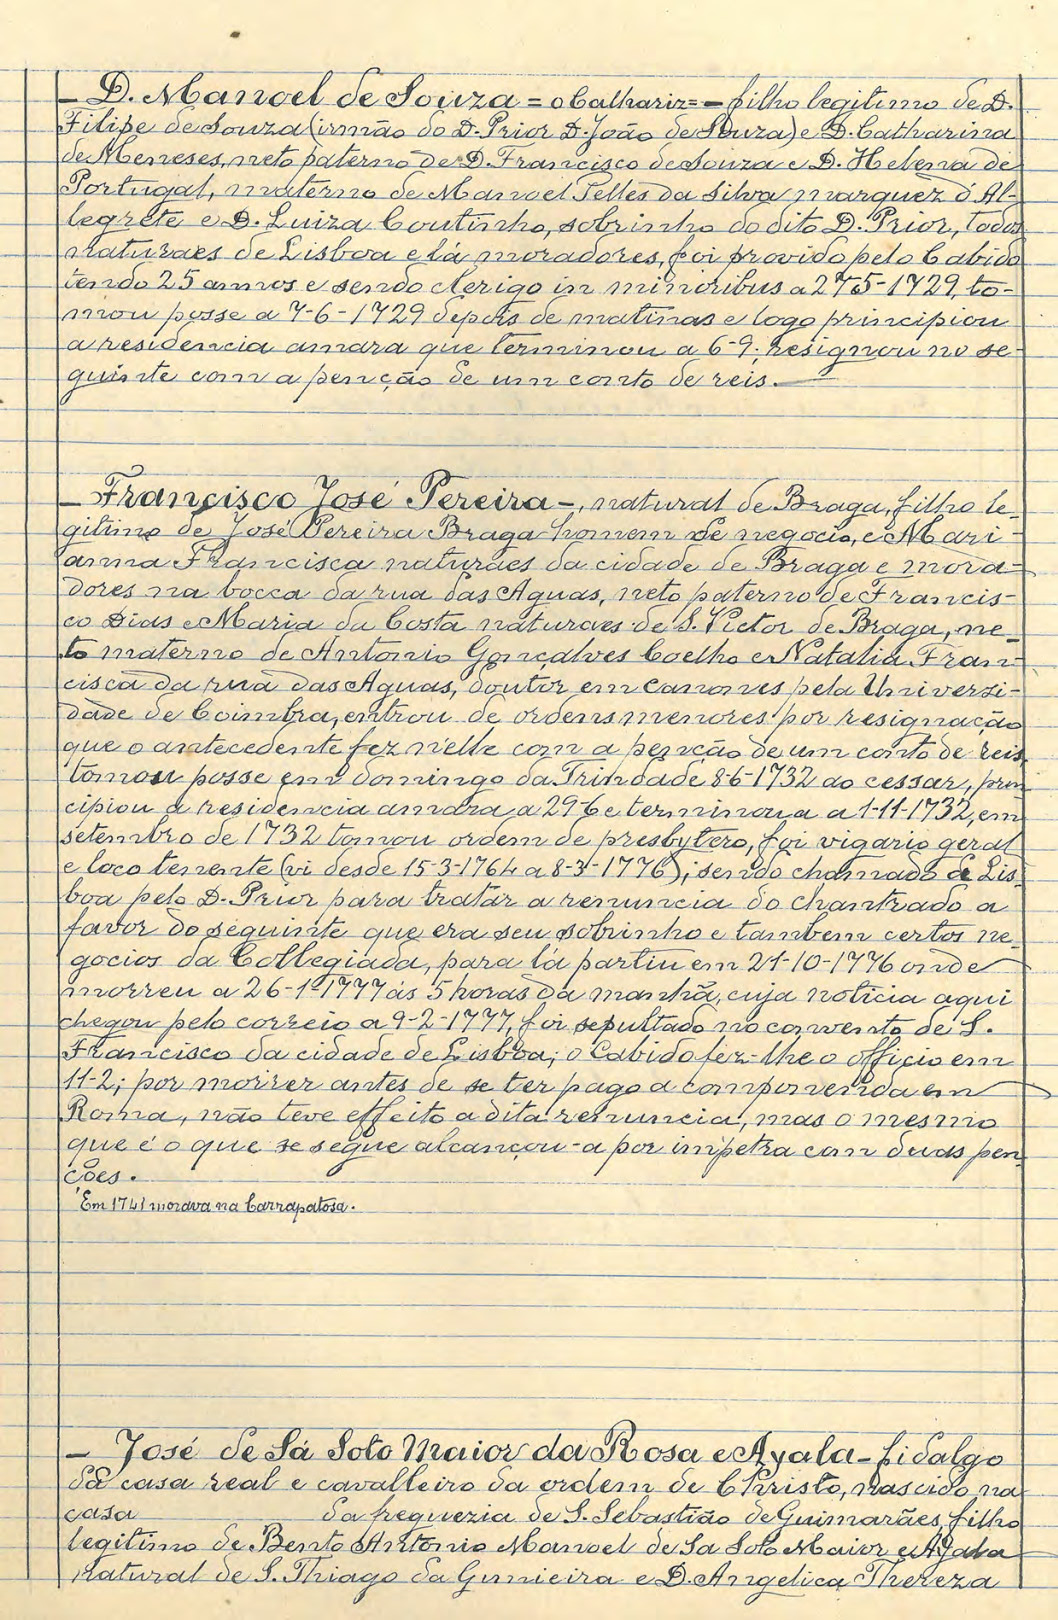 – D. Manoel de Souza = o Calhariz = – filho legitimo de D.
Filipe de Souza (irmão do D. Prior D. João de Souza) e D. Catharina
de Meneses, neto paterno de D. Francisco de Souza e D. Helena de
Portugal, materno de Manoel Telles da Silva marquez d'Al-
legrete e D. Luiza Coutinho, sobrinho do dito D. Prior, todos
naturaes de Lisboa e lá moradores, foi provido pelo Cabido
tendo 25 annos e sendo clerigo in minoribus a 27-5-1729, to-
mou posse a 7-6-1729 depois de matinas e logo principiou
a residencia amara que terminou a 6-9; resignou no se-
guinte com a penção de um conto de reis.
– Francisco José Pereira –, natural de Braga, filho le-
gitimo de José Pereira Braga homem de negocio, e Mari-
anna Francisca naturaes da cidade de Braga e mora-
dores na bocca da rua das Aguas, neto paterno de Francis-
co Dias e Maria da Costa naturaes de S. Victor de Braga, ne-
to materno de Antonio Gonçalves Coelho e Natalia Fran-
cisca da rua das Aguas, doutor em canones pela Universi-
dade de Coimbra, entrou de ordens menores por resignação
que o antecedente fez n'elle com a penção de um conto de reis,
tomou posse em domingo da Trindade 8-6-1732 ao cessar, prin
cipiou a residencia amara a 29-6 e terminou a a 1-11-1732, em
setembro de 1732 tomou ordem de presbytero, foi vigario geral
e loco tenente (vi desde 15-3-1764 a 8-3-1776); sendo chamado a Lis-
boa pelo D. Prior para tratar a renuncia do chantrado a
favor do seguinte que era seu sobrinho e tambem certos ne-
gocios da Collegiada, para lá partiu em 21-10-1776 onde
morreu a 26-1-1777 ás 5 horas da manhã, cuja noticia aqui
chegou pelo correio a 9-2-1777, foi sepultado no convento de S.
Francisco da cidade de Lisboa; o Cabido fez-lhe o officio em
11-2; por morrer antes de se ter pago a componenda em
Roma, não teve effeito a dita renuncia, mas o mesmo
que é o que se segue alcançou-a por impetra com duas pen-
ções.
Em 1741 morava na Carrapatosa.
– José de Sá Soto Maior da Rosa e Ayala – fidalgo
da casa real e cavalleiro da ordem de Christo, nascido na
casa da freguezia de S. Sebastião de Guimarães, filho
legitimo de Bento Antonio Manoel de Sa Soto Maior e Ayala
natural de S. Thiago da Gemieira e D. Angelica Thereza